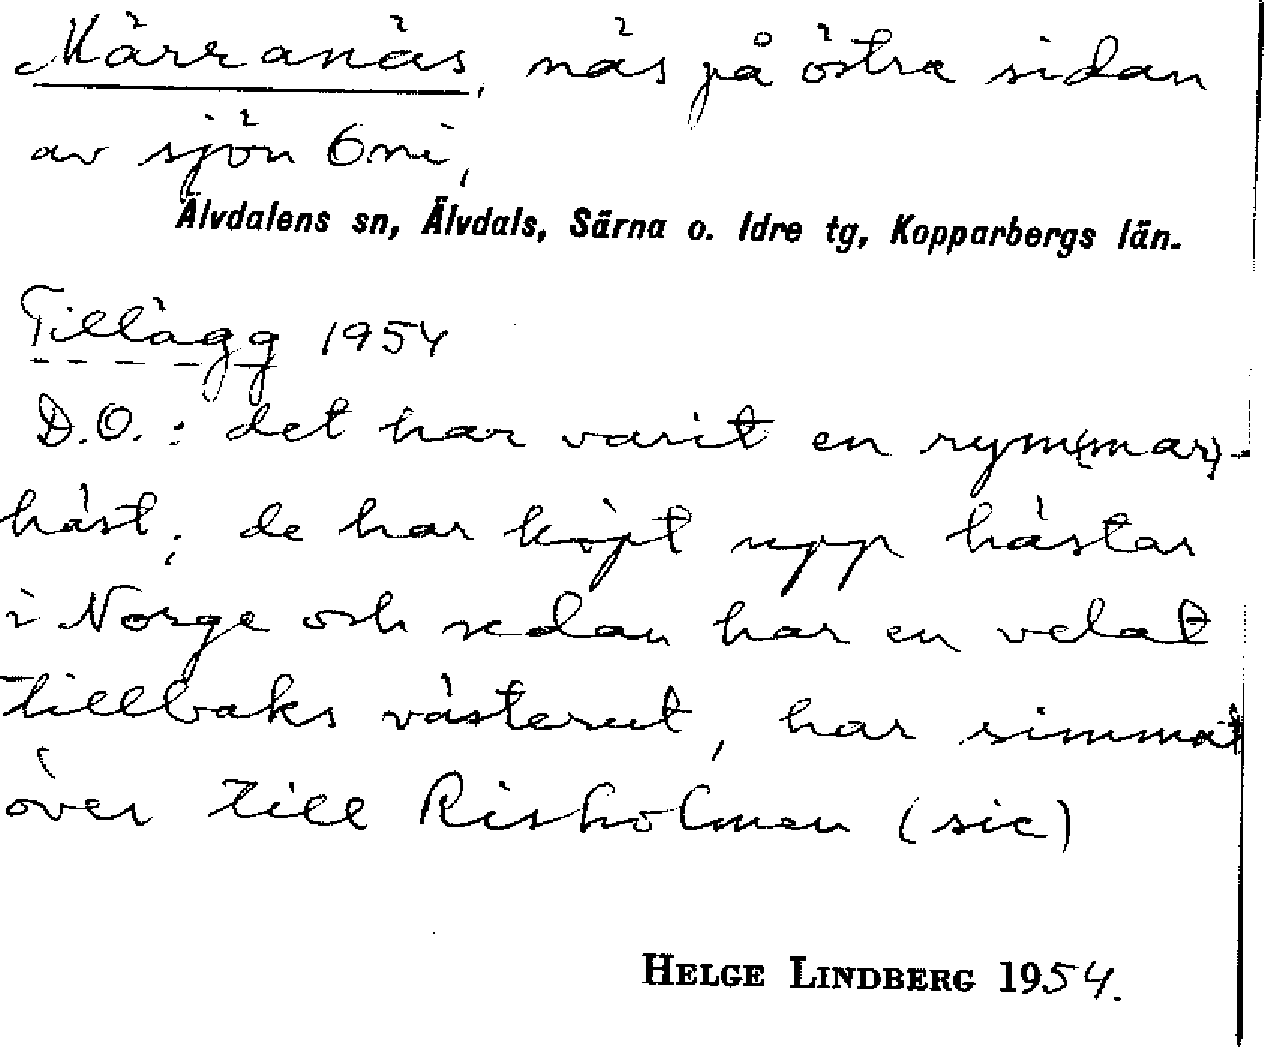 Märranäs, näs på östra sidan
av sjön Öni,
Älvdalens sn, Älvdals, Särna o. Idre tg, Kopparbergs län.
Tillägg 1954
D.O.: det har varit en rym(mar)-
häst; de har köpt upp hästar
i Norge och sedan har en velat
tillbaks västerut, har simmat
över till Risholmen (sic)
HELGE LINDBERG 1954.